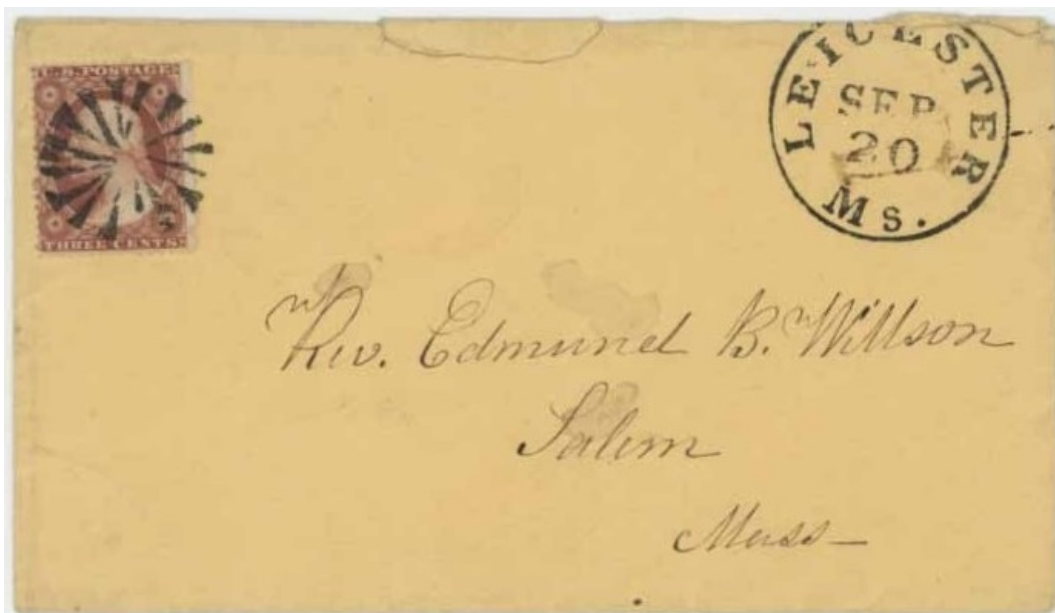 U.S. POSTAGE
THREE CENTS
LEICESTER
SEP
20
Ms.
Rev. Edmund B. Willson
Salem
Mass—